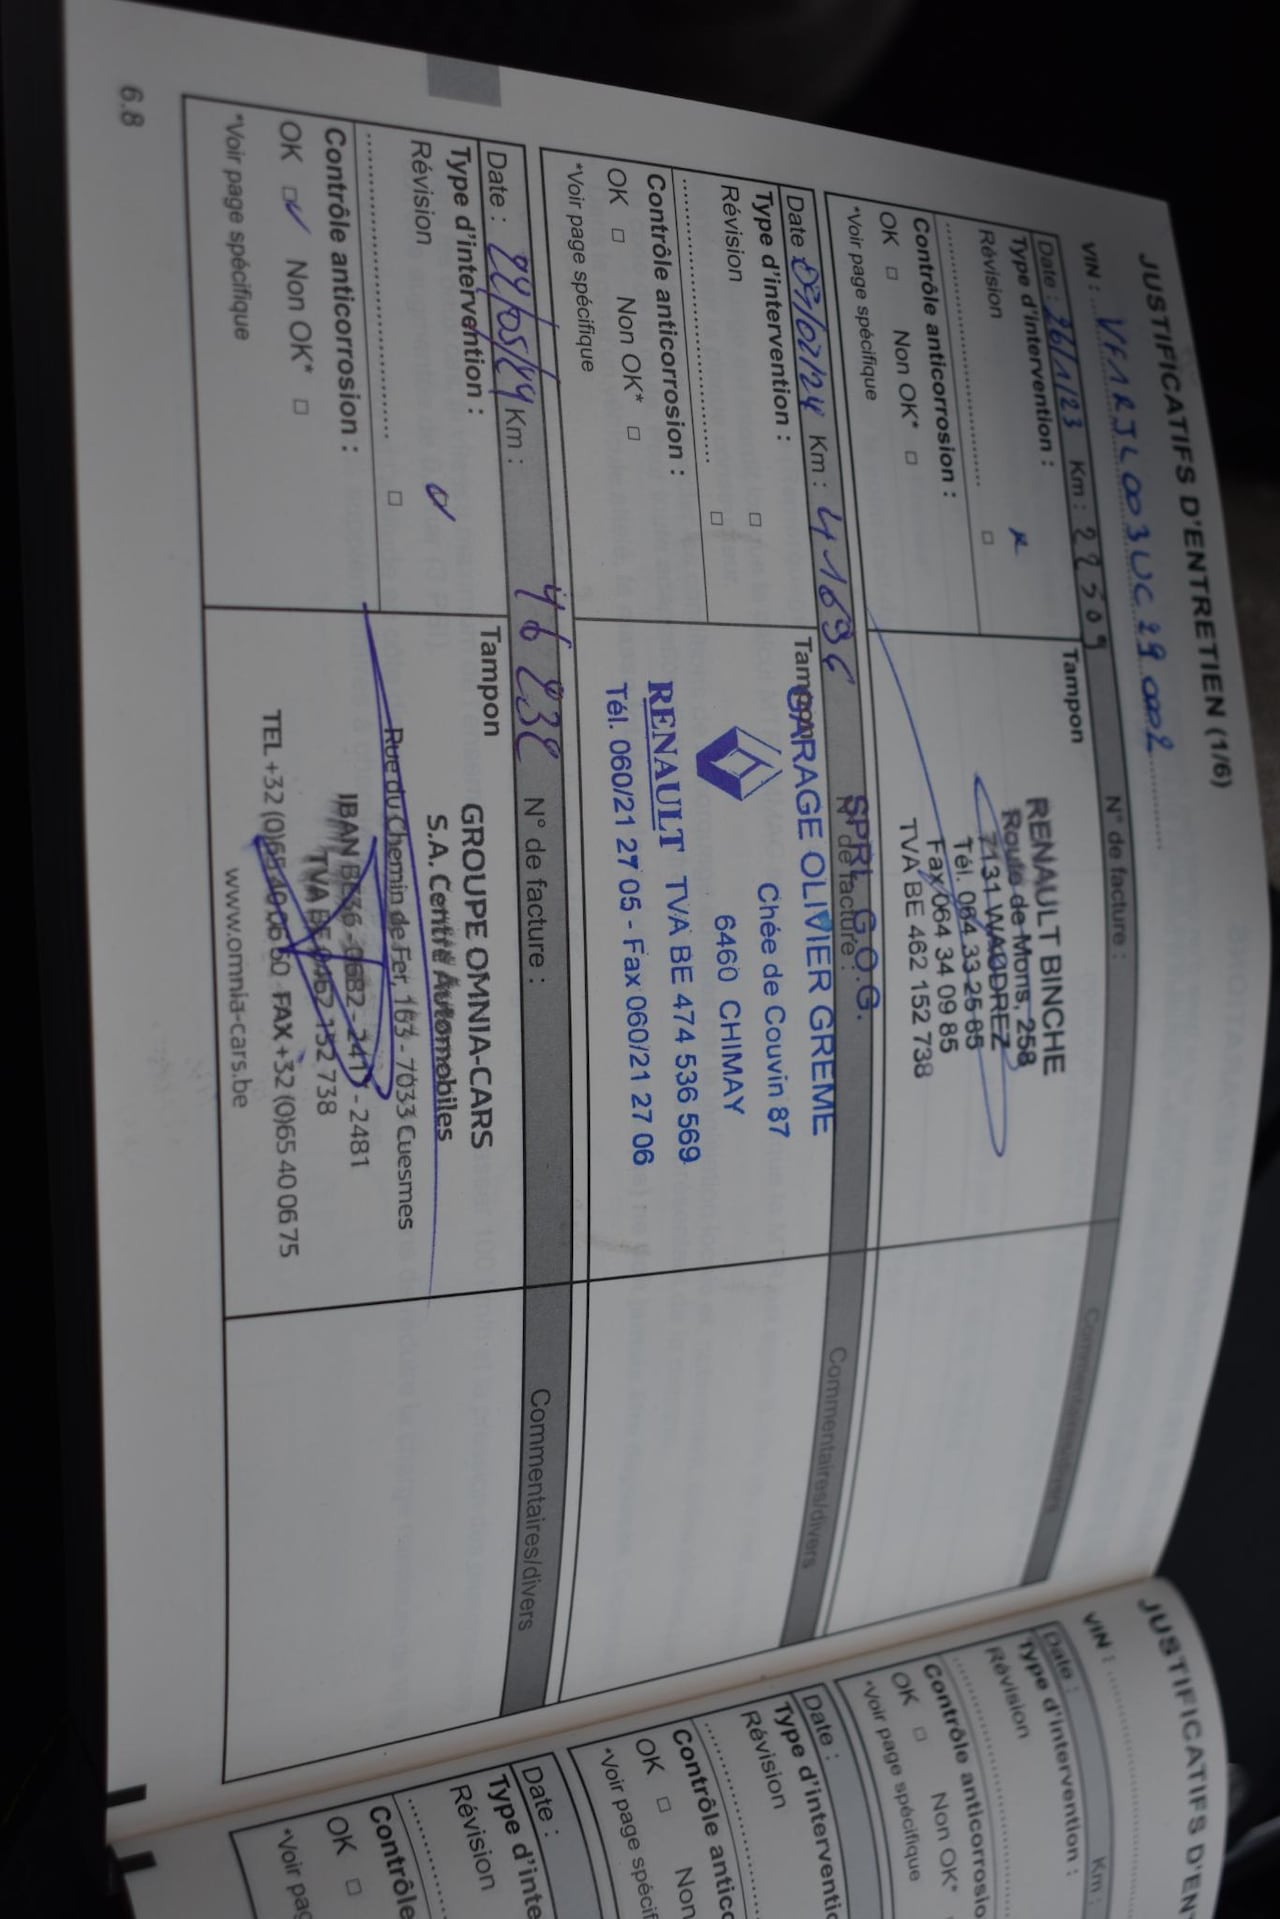 JUSTIFICATIFS D'ENTRETIEN (1/6)
VIN : VF1RJL003UC290002
Date : 26/1/23 Km : 22309 N° de facture : Commentaires/divers
Type d'intervention : Tampon
Révision
Contrôle anticorrosion :
OK □ Non OK* □
*Voir page spécifique
RENAULT BINCHE
Route de Mons, 258
7131 WAUDREZ
Tél. 064 33 25 85
Fax 064 34 09 85
TVA BE 462 152 738
Date : 07/02/24 Km : 41696 N° de facture : Commentaires/divers
Type d'intervention : Tampon
Révision □
Contrôle anticorrosion :
OK □ Non OK* □
*Voir page spécifique
SPRL G.O.G.
GARAGE OLIVIER GREME
Chée de Couvin 87
6460 CHIMAY
RENAULT TVA BE 474 536 569
Tél. 060/21 27 05 - Fax 060/21 27 06
Date : Km : N° de facture : Commentaires/divers
Type d'intervention : Tampon
Révision
Contrôle anticorrosion :
OK Non OK* □
*Voir page spécifique
GROUPE OMNIA-CARS
S.A. Centre Automobiles
Rue du Chemin de Fer, 163 - 7033 Cuesmes
IBAN BE36 - 0682 - 2411 - 2481
TVA BE 0462 152 738
TEL +32 (0)65 40 06 60 FAX +32 (0)65 40 06 75
www.omnia-cars.be
6.8
JUSTIFICATIFS D'EN
VIN :
Date : Km :
Type d'intervention :
Révision
Contrôle anticorrosio
OK □ Non OK*
*Voir page spécifique
Date :
Type d'interventio
Révision
Contrôle antico
OK □ Non
*Voir page spécif
Date :
Type d'inte
Révision
Contrôle
OK □
*Voir pag